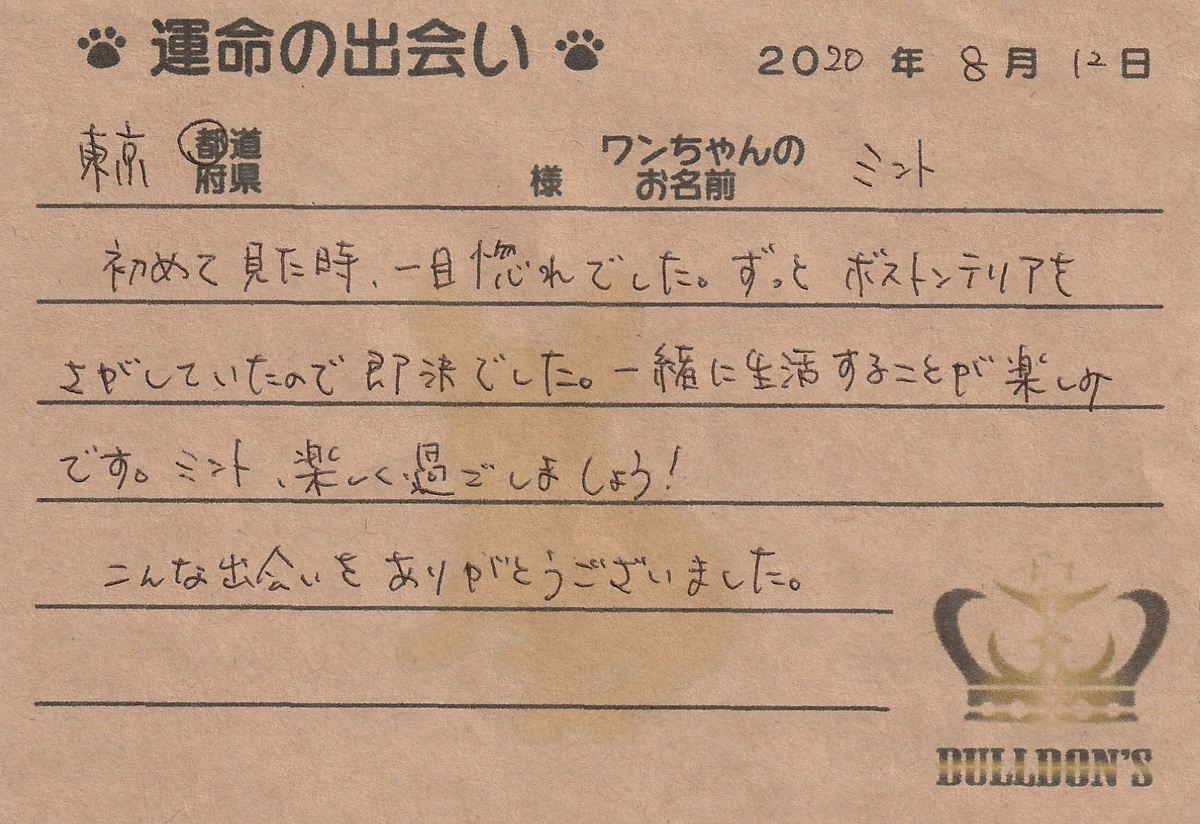 運命の出会い
2020年 8月 12日
東京 都道府県 様 ワンちゃんのお名前 ミント
初めて見た時、一目惚れでした。ずっとボストンテリアを
さがしていたので即決でした。一緒に生活することが楽しみ
です。ミント、楽しく過ごしましょう!
こんな出会いをありがとうございました。
BULLDON'S